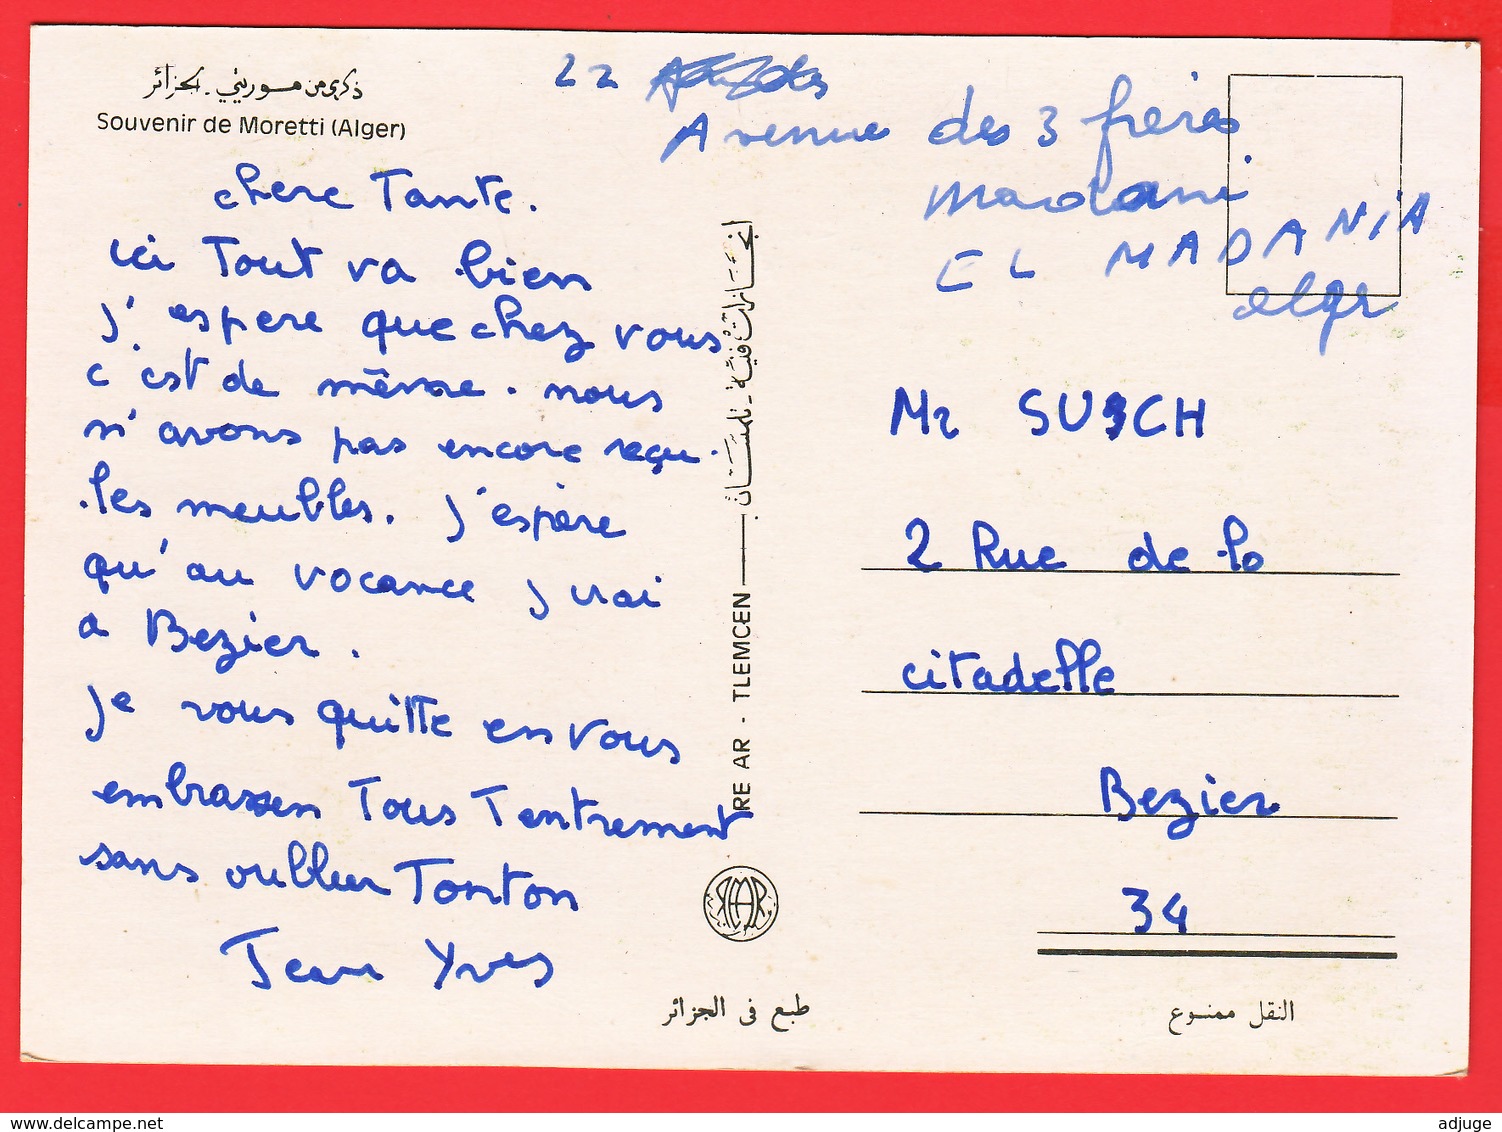 ذكرى من موريتي - الجزائر
Souvenir de Moretti (Alger)
22
Avenue des 3 frères
Madani
EL MADANiA
alger
chere Tante.
ici Tout va bien
j'espere que chez vous
c'est de même. nous
n'avons pas encore reçu
les meubles. J'espère
qu'au vacance j'irai
a Bezier.
je vous quitte en vous
embrassen Tous Tentrement
sans oublier Tonton
Jean Yves
RE AR - TLEMCEN
Mr SUSCH
2 Rue de la
citadelle
Bezier
34
طبع في الجزائر
النقل ممنوع
www.delcampe.net
adjuge